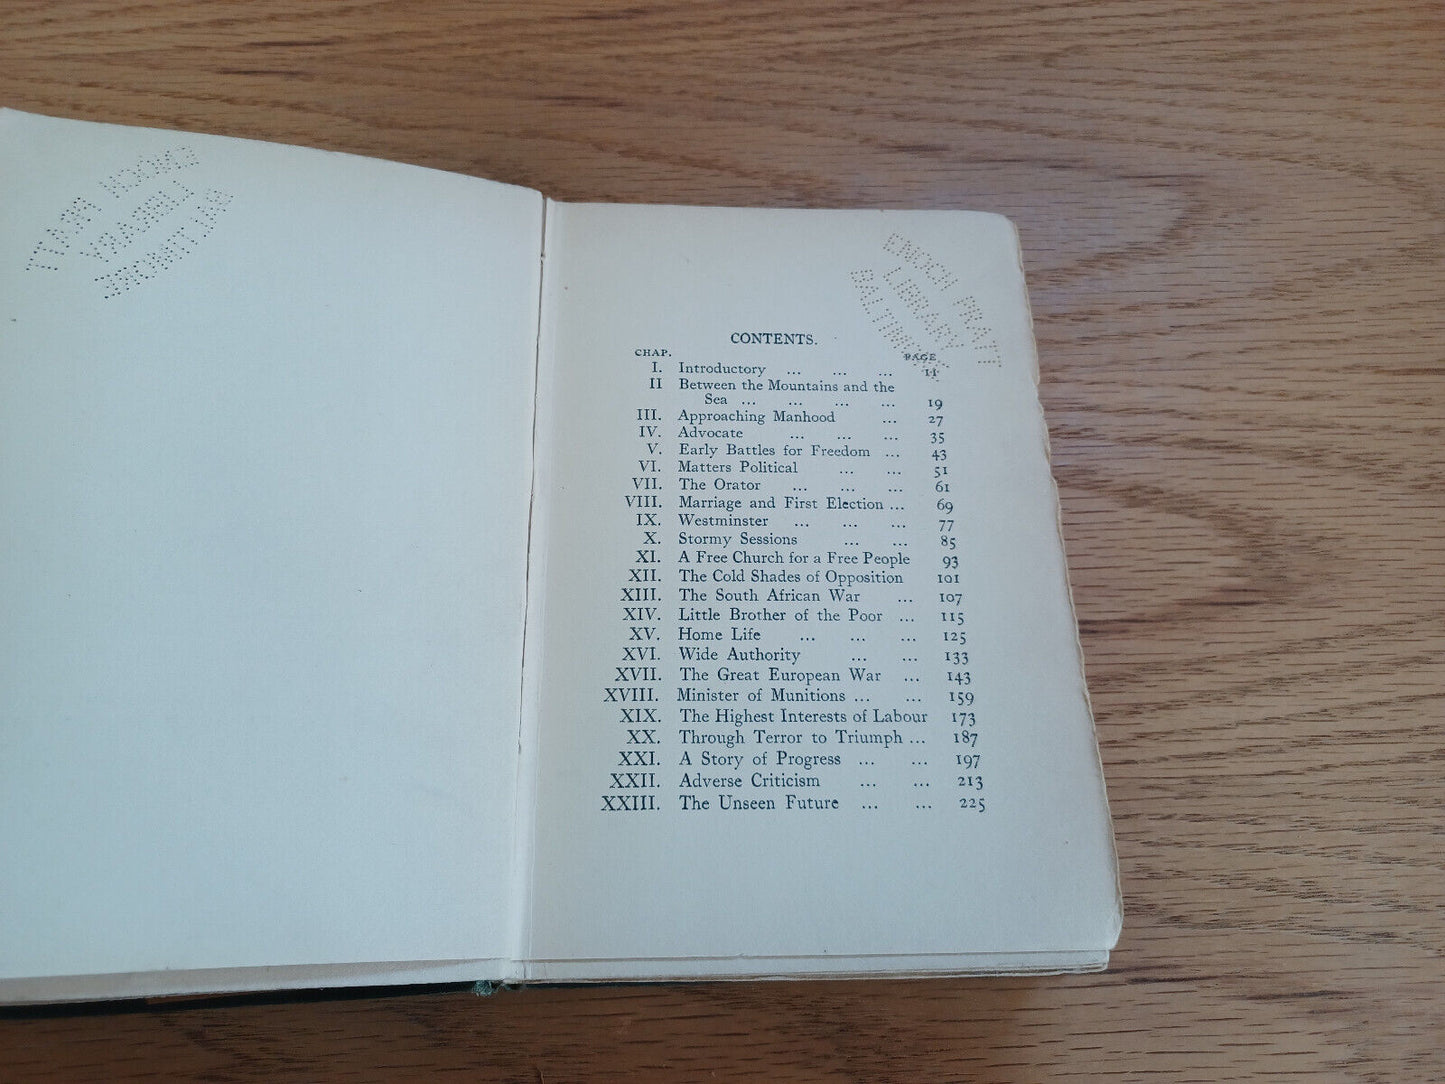 ENOCH PRATT
LIBRARY
BALTIMORE
ENOCH PRATT
LIBRARY
BALTIMORE
CONTENTS.
CHAP. PAGE
I. Introductory ... ... ... 11
II Between the Mountains and the
Sea ... ... ... ... 19
III. Approaching Manhood ... 27
IV. Advocate ... ... ... 35
V. Early Battles for Freedom ... 43
VI. Matters Political ... ... 51
VII. The Orator ... ... ... 61
VIII. Marriage and First Election ... 69
IX. Westminster ... ... ... 77
X. Stormy Sessions ... ... 85
XI. A Free Church for a Free People 93
XII. The Cold Shades of Opposition 101
XIII. The South African War ... 107
XIV. Little Brother of the Poor ... 115
XV. Home Life ... ... ... 125
XVI. Wide Authority ... ... 133
XVII. The Great European War ... 143
XVIII. Minister of Munitions ... ... 159
XIX. The Highest Interests of Labour 173
XX. Through Terror to Triumph ... 187
XXI. A Story of Progress ... ... 197
XXII. Adverse Criticism ... ... 213
XXIII. The Unseen Future ... ... 225